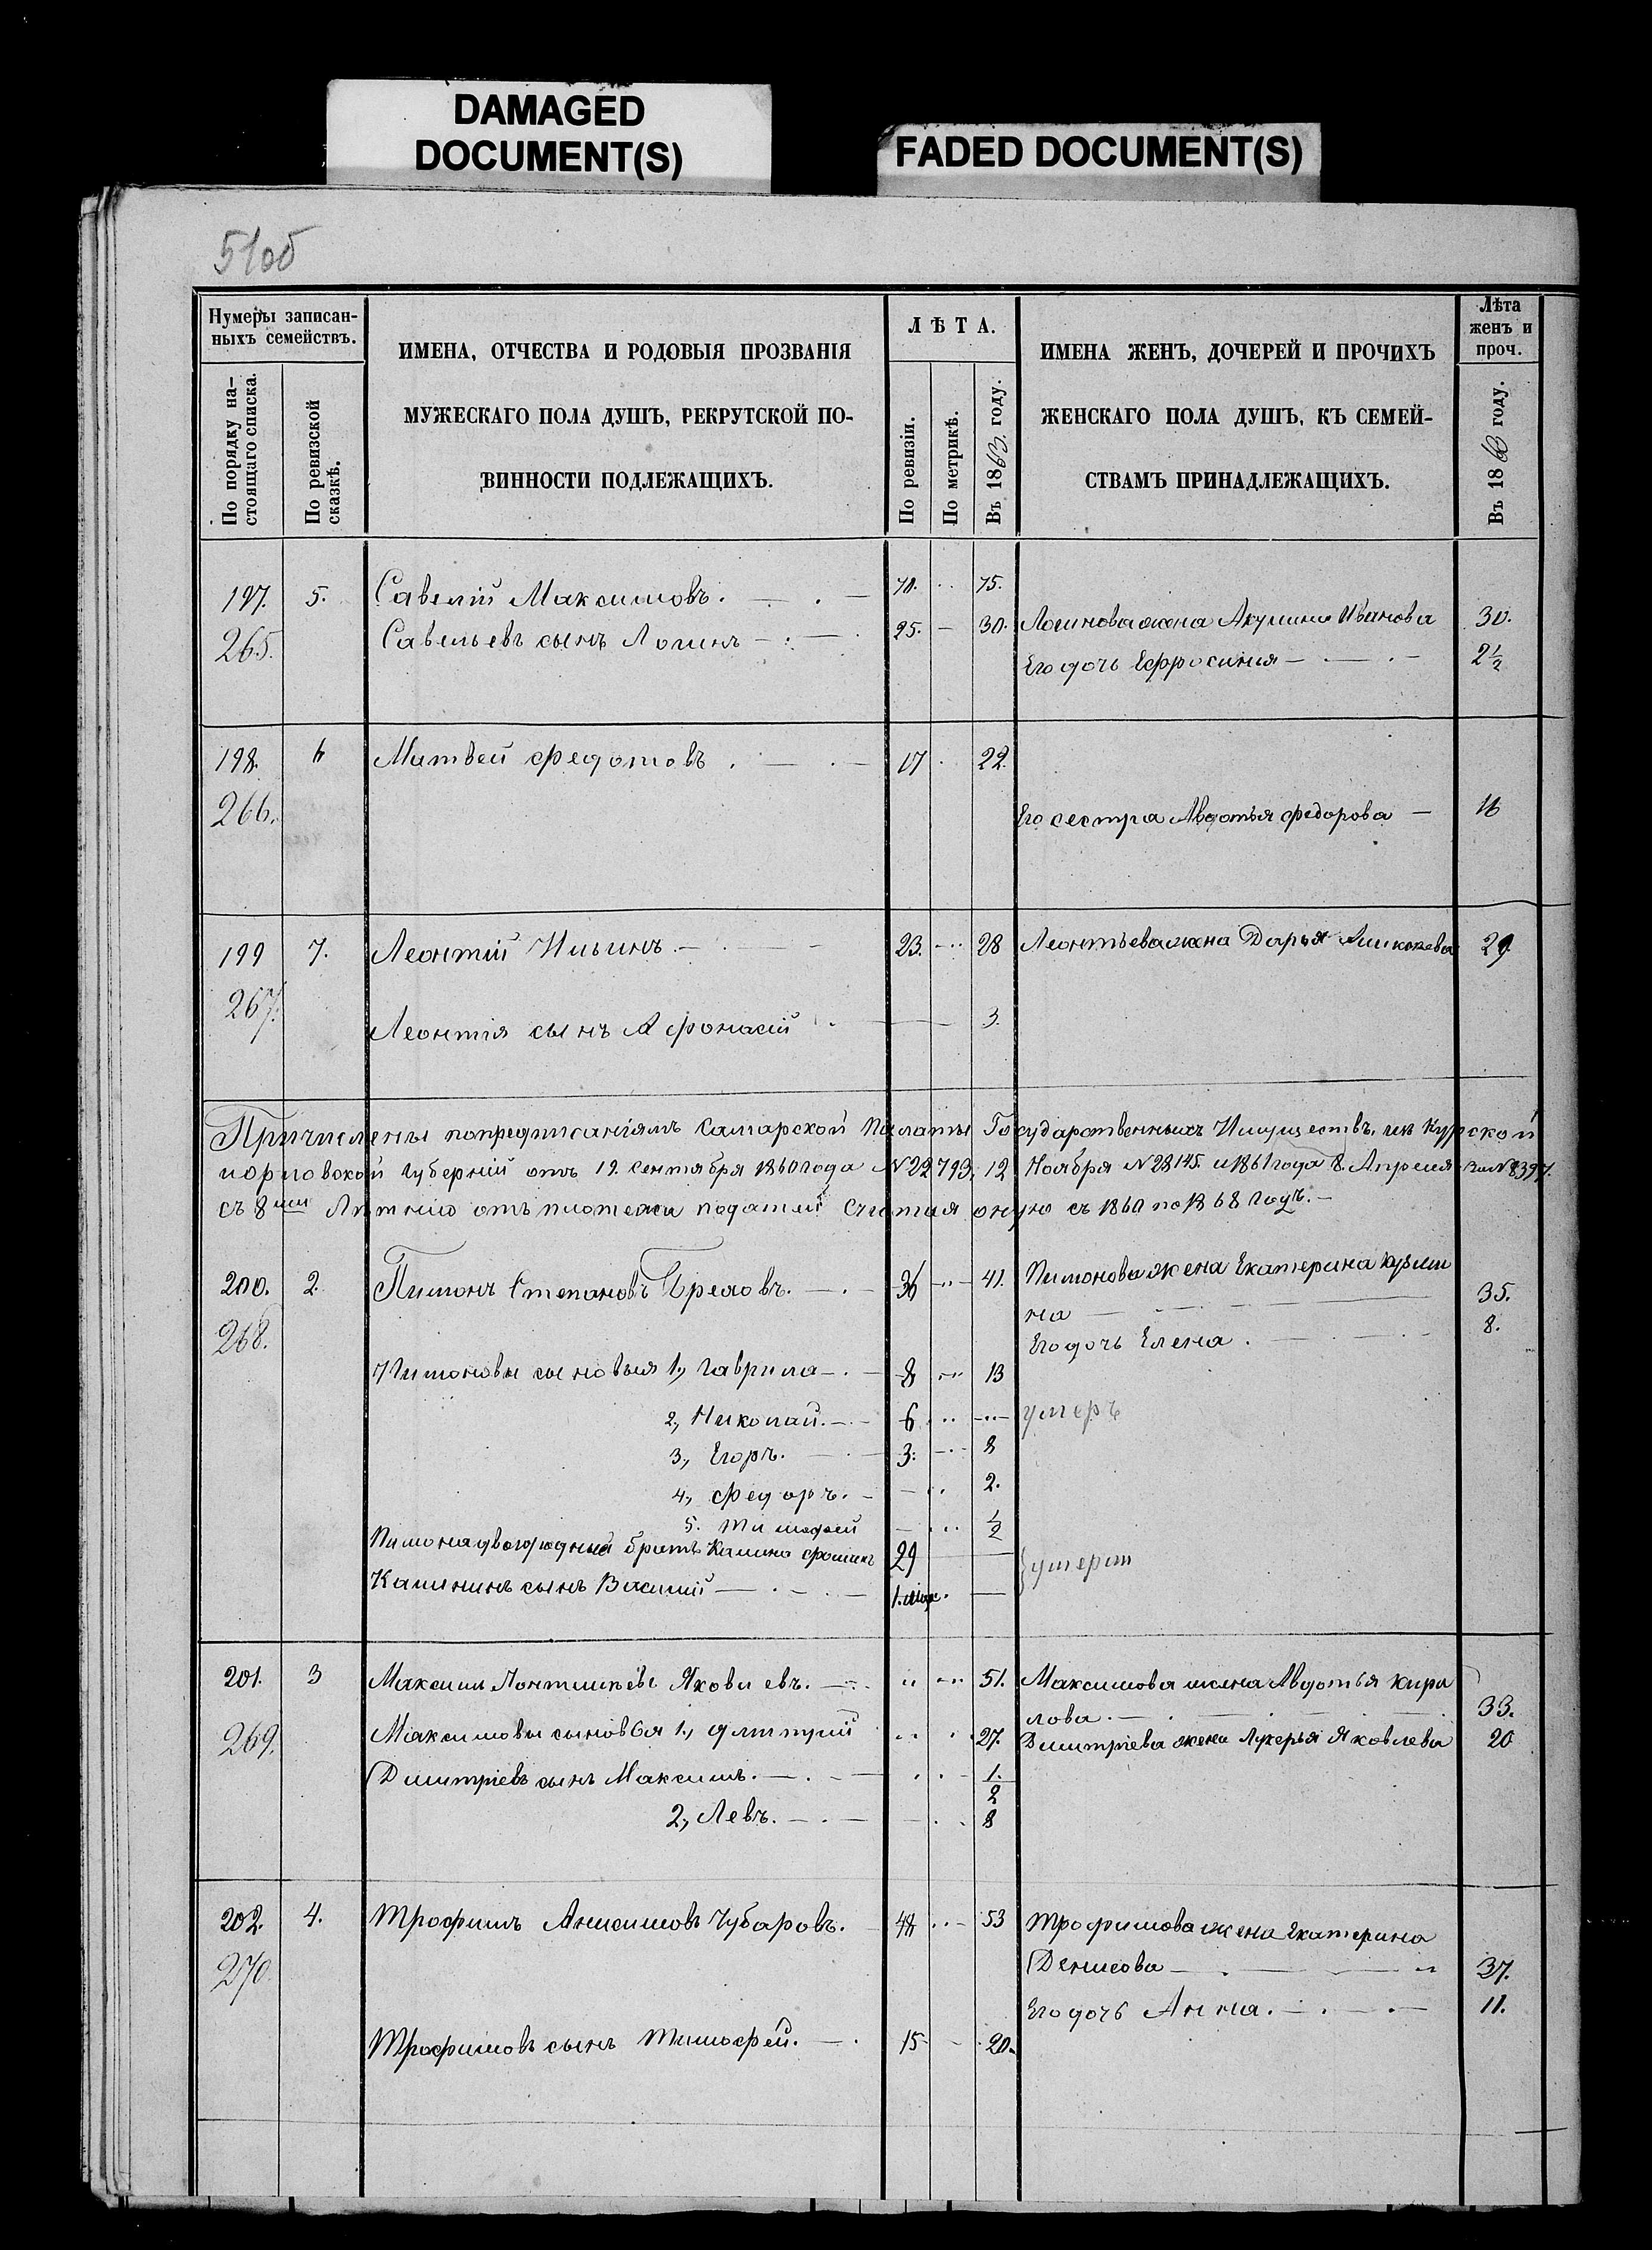 DAMAGED
DOCUMENT(S)
FADED DOCUMENT(S)
51об
Нумеры записан-
ныхъ семействъ.
По порядку на-
стоящаго списка.
По ревизской
сказкѣ.
ИМЕНА, ОТЧЕСТВА И РОДОВЫЯ ПРОЗВАНІЯ
МУЖЕСКАГО ПОЛА ДУШЪ, РЕКРУТСКОЙ ПО-
ВИННОСТИ ПОДЛЕЖАЩИХЪ.
ЛѢТА.
По ревизіи.
По метрикѣ.
Въ 1863 году.
ИМЕНА ЖЕНЪ, ДОЧЕРЕЙ И ПРОЧИХЪ
ЖЕНСКАГО ПОЛА ДУШЪ, КЪ СЕМЕЙ-
СТВАМЪ ПРИНАДЛЕЖАЩИХЪ.
Лѣта
женъ и
проч.
Въ 1863 году.
197. 5. Савелій Максимовъ. 70. 75.
265. Савельевъ сынъ Логинъ 25. 30. Логинова жена Акулина Иванова 30.
Его дочь Ефросинія 2½
198. 6 Матвей Федотовъ 17 22.
266. Его сестра Авдотья Федорова 16
199 7. Леонтій Ильинъ 23. 28 Леонтьева жена Дарья 29
267. Леонтія сынъ Афонасій 3.
Причислены попредписаніямъ Самарской Палаты Государственныхъ Имуществъ, изъ Курской
иорловской Губерній отъ 19. сентября 1860 года N22793, 12 Ноября N28145. и 1861 года 8. Апреля за N8397.
съ 8ми Лѣтнію отъ платежа податей считая оную съ 1860 по 1868 годъ.
200. 2. Пимонъ Степановъ 36 41. Пимонова жена Екатерина Кузми
на 35.
268. Его дочь Елена. 8.
Пимоновы сыновья 1, Гаврила 8 13
2, Николай. 6 умеръ
3, Егоръ. 3. 8
4, Федоръ. 2.
5. Тимофей ½
Пимона двоюродный братъ Калина Фомин 29
Калининъ сынъ Василій 1. мѣс. умерли
201. 3 Максимъ Яковлевъ. 51. Максимова жена Авдотья Кири
лова. 33.
269. Максимовы сыновья 1, Дмитрий 27. Дмитріева жена Лукерья Яковлева 20
Дмитріевъ сынъ Максимъ. ½
2, Левъ. 8
202. 4. Трофимъ Анисимовъ Чубаровъ. 48 53 Трофимова жена Екатерина
270. Денисова 37.
Его дочь Анна. 11.
Трофимовъ сынъ Тимофей. 15 20.